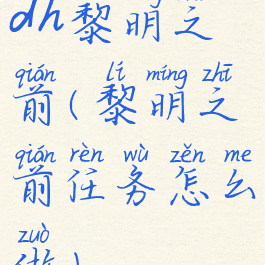 dh黎明之
qián lí míng zhī
前(黎明之
qián rèn wù zěn me
前任务怎么
zuò
做)